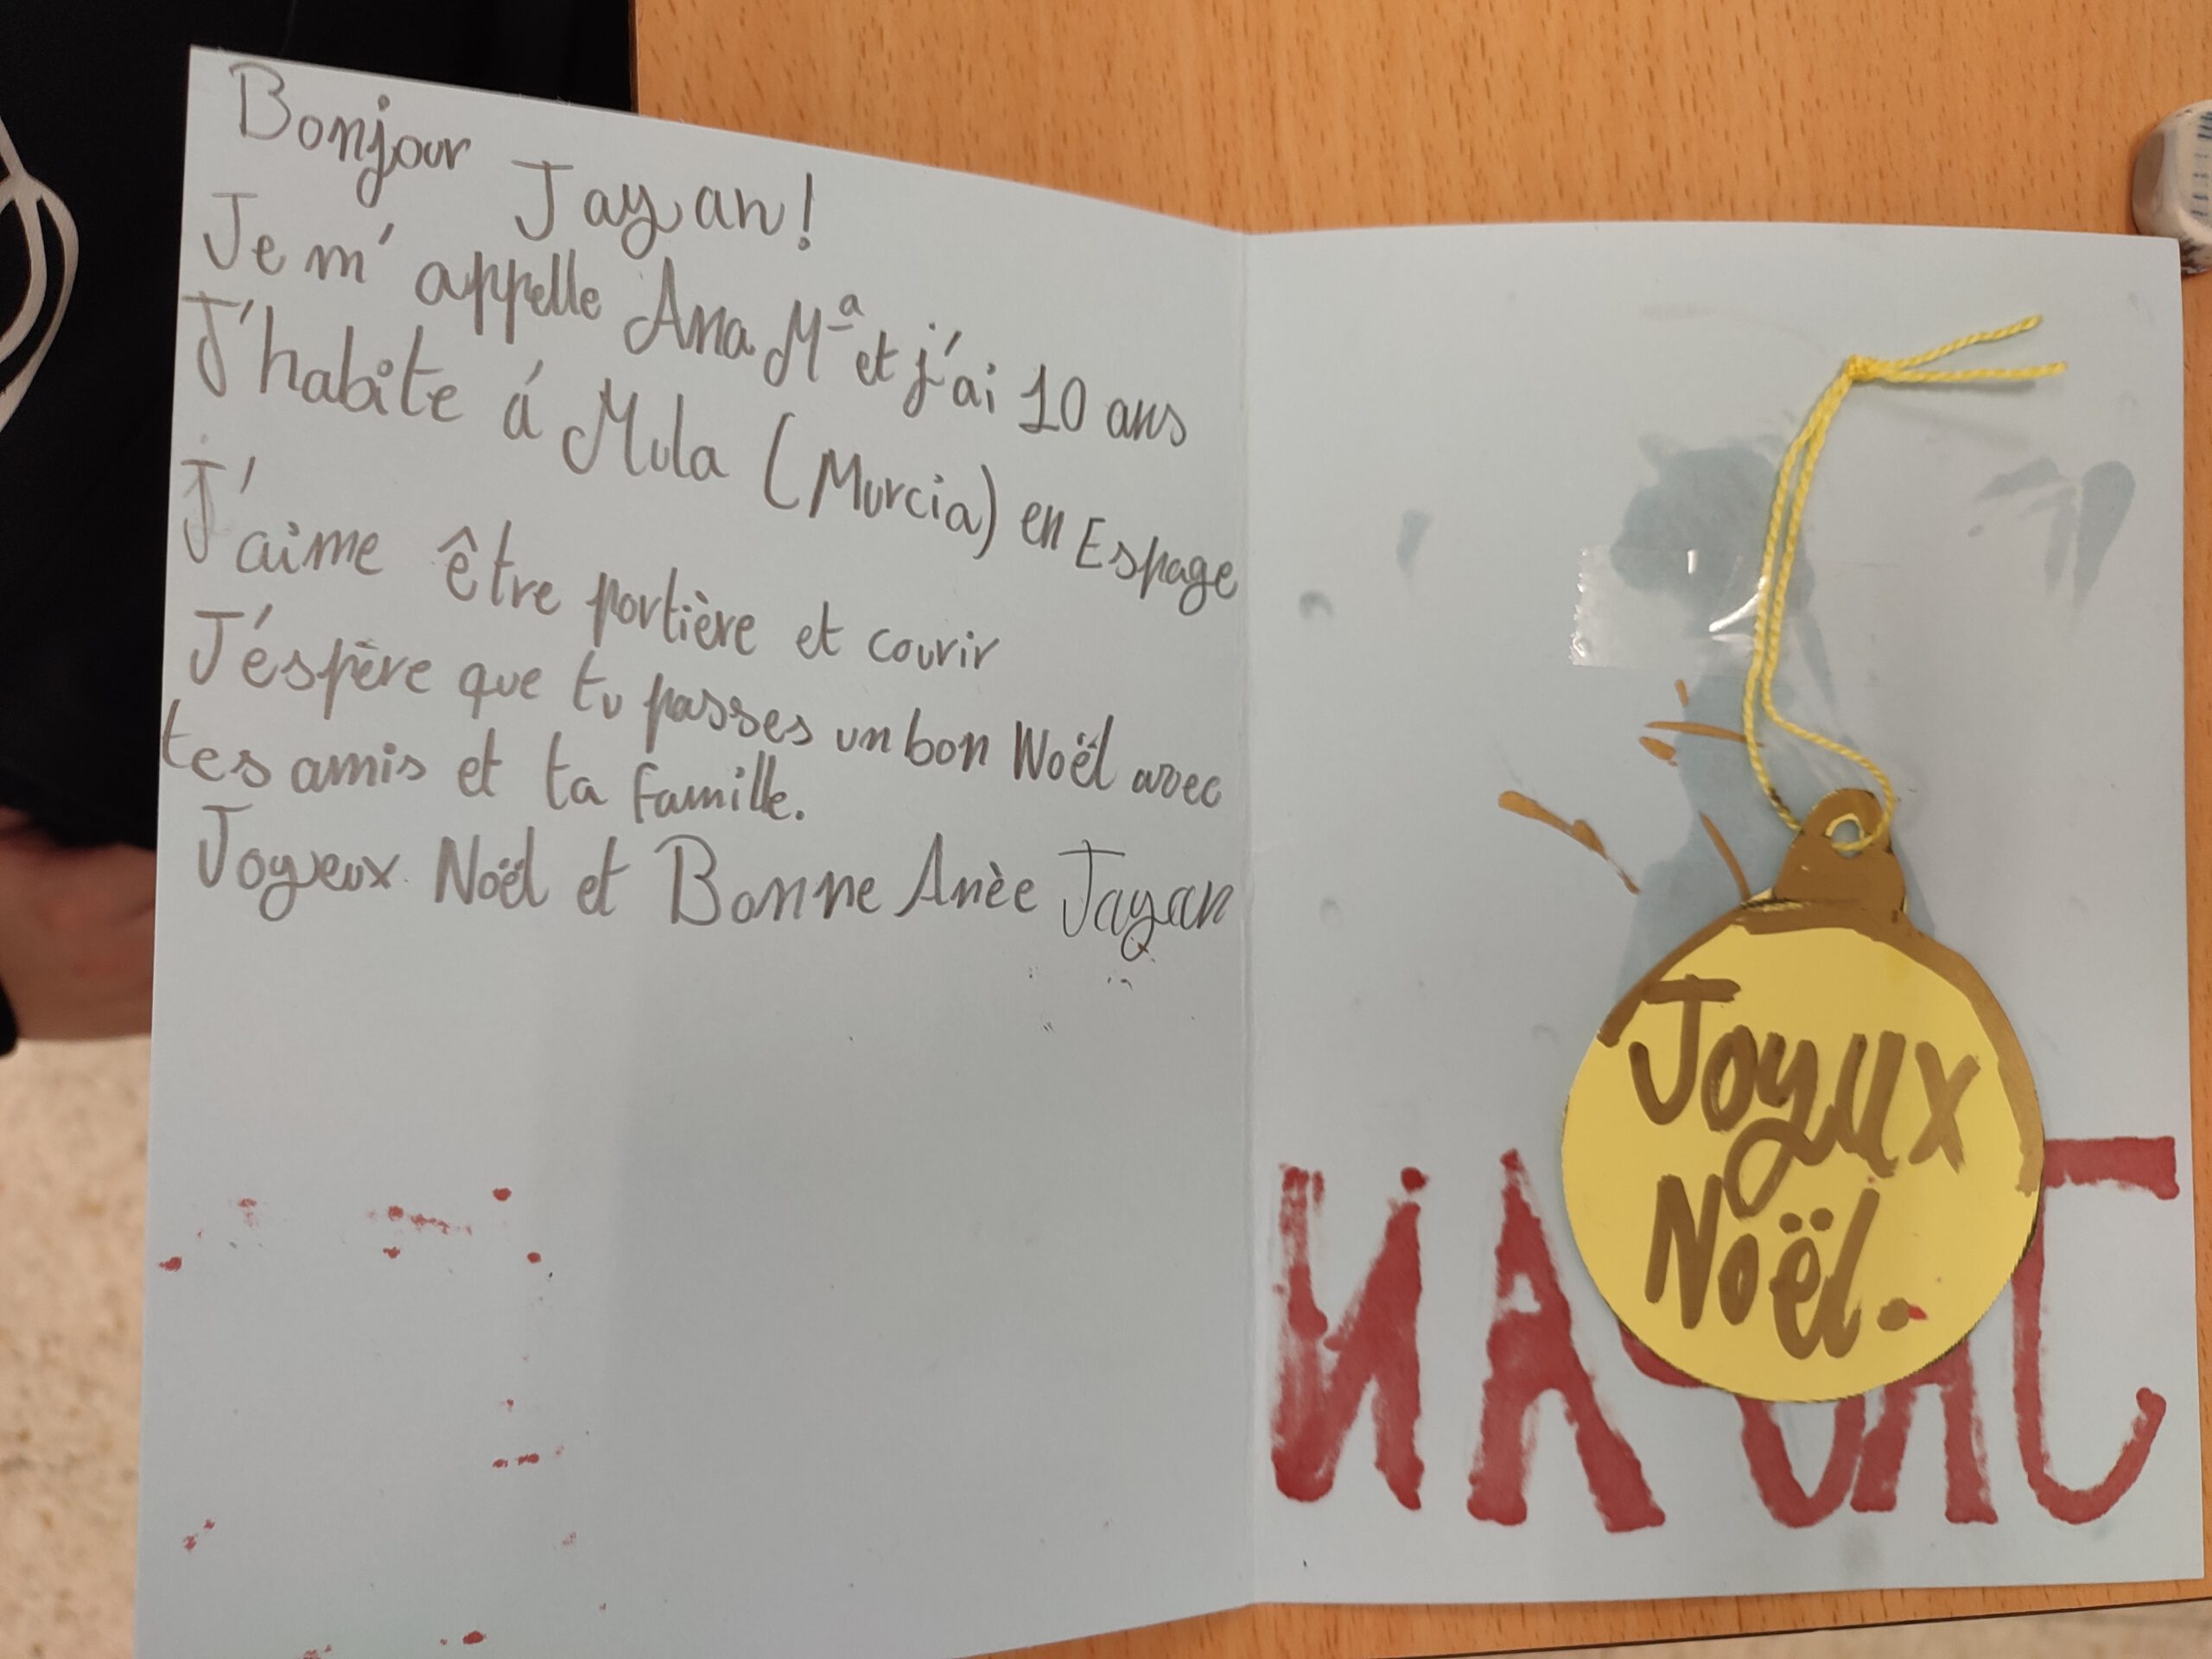 Bonjour Jayan!
Je m'appelle Ana Mª et j'ai 10 ans
J'habite á Mula (Murcia) en Espage
J'aime être portière et courir
J'éspère que tu passes un bon Noël avec
tes amis et ta famille.
Joyeux Noël et Bonne Anèe Jayan
Joyux
Noël.